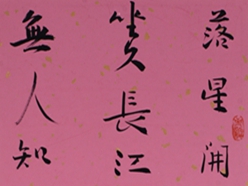 落星開
坐久長江
無人知